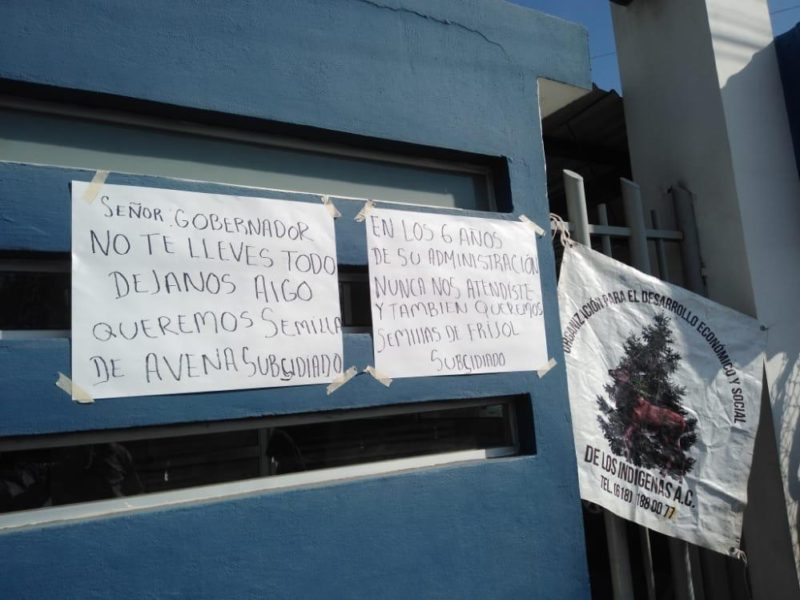 SEÑOR. GOBERNADOR
NO TE LLEVES TODO
DEJANOS AlGO
QUEREMOS SEMILLA
DE AVENA SUBSIDIADO
EN LOS 6 AÑOS
DE SU ADMINISTRACIÓN
NUNCA NOS ATENDISTE
Y TAMBIEN QUEREMOS
SEMILLAS DE FRIJOL
SUBSIDIADO
ORGANIZACIÓN PARA EL DESARROLLO ECONOMICO Y SOCIAL
DE LOS INDIGENAS A.C.
TEL. (618) 188 00 77